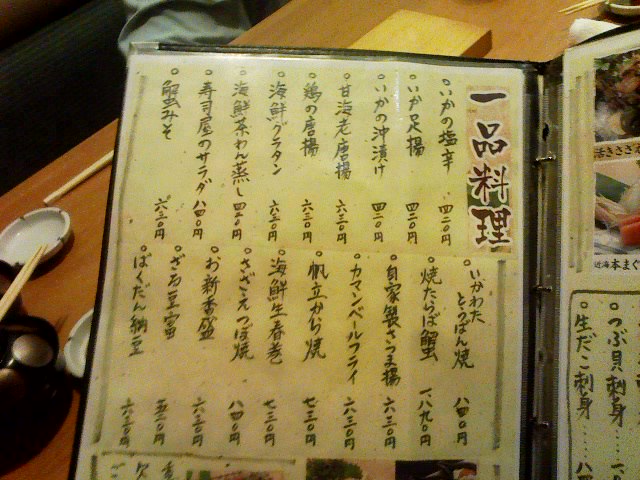 一品料理
いかの塩辛 四二〇円
いか足揚 四二〇円
いかの沖漬け 四二〇円
甘海老唐揚 六三〇円
鶏の唐揚 六三〇円
海鮮グラタン 六三〇円
海鮮茶わん蒸し 四二〇円
寿司屋のサラダ 八四〇円
蟹みそ 六三〇円
いかわたとうばん焼 八四〇円
焼たらば蟹 一、八九〇円
自家製さつま揚 六三〇円
カマンベールフライ 六三〇円
帆立から焼 七三〇円
海鮮生春巻 七三〇円
さざえつぼ焼 八四〇円
お新香盛 六三〇円
ざる豆富 五二〇円
ばくだん納豆 六三〇円
活きさざえ
近海本まぐ
つぶ貝刺身
生だこ刺身